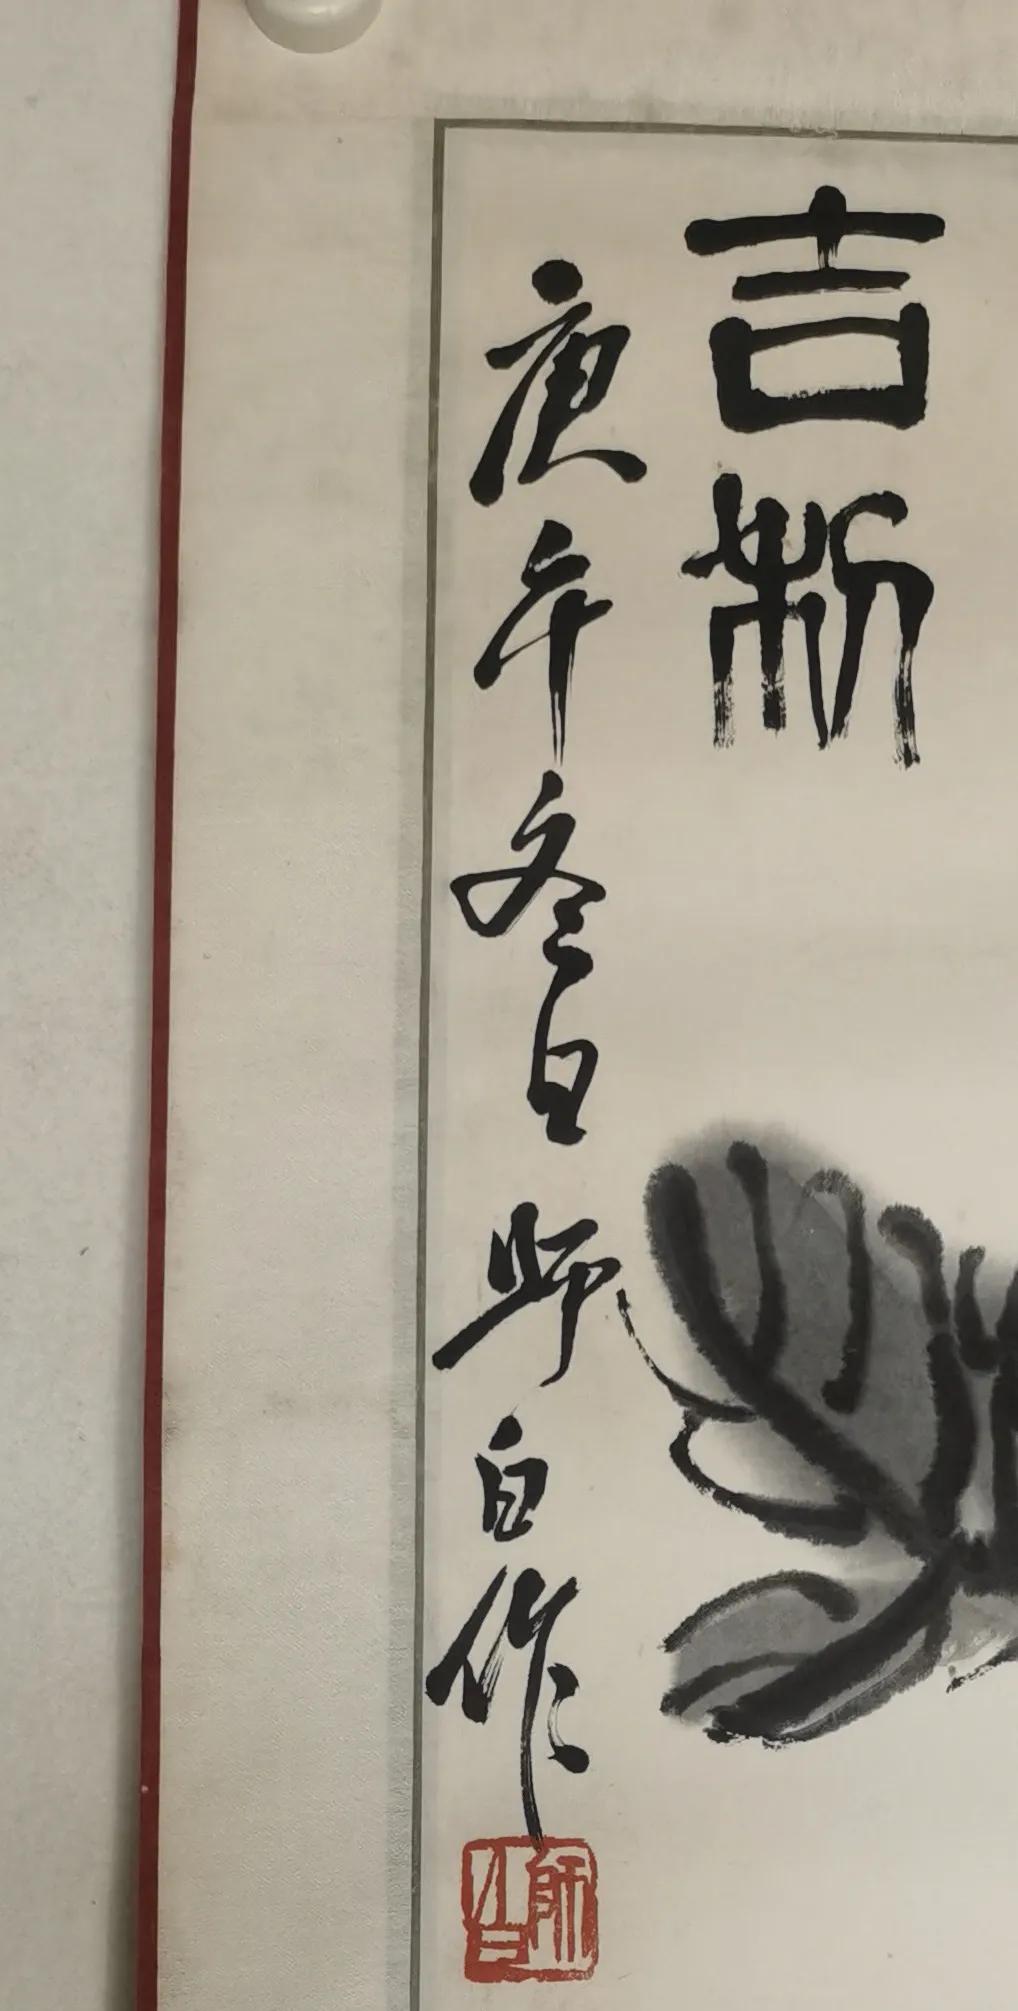 吉利
庚午冬日师白作
師白